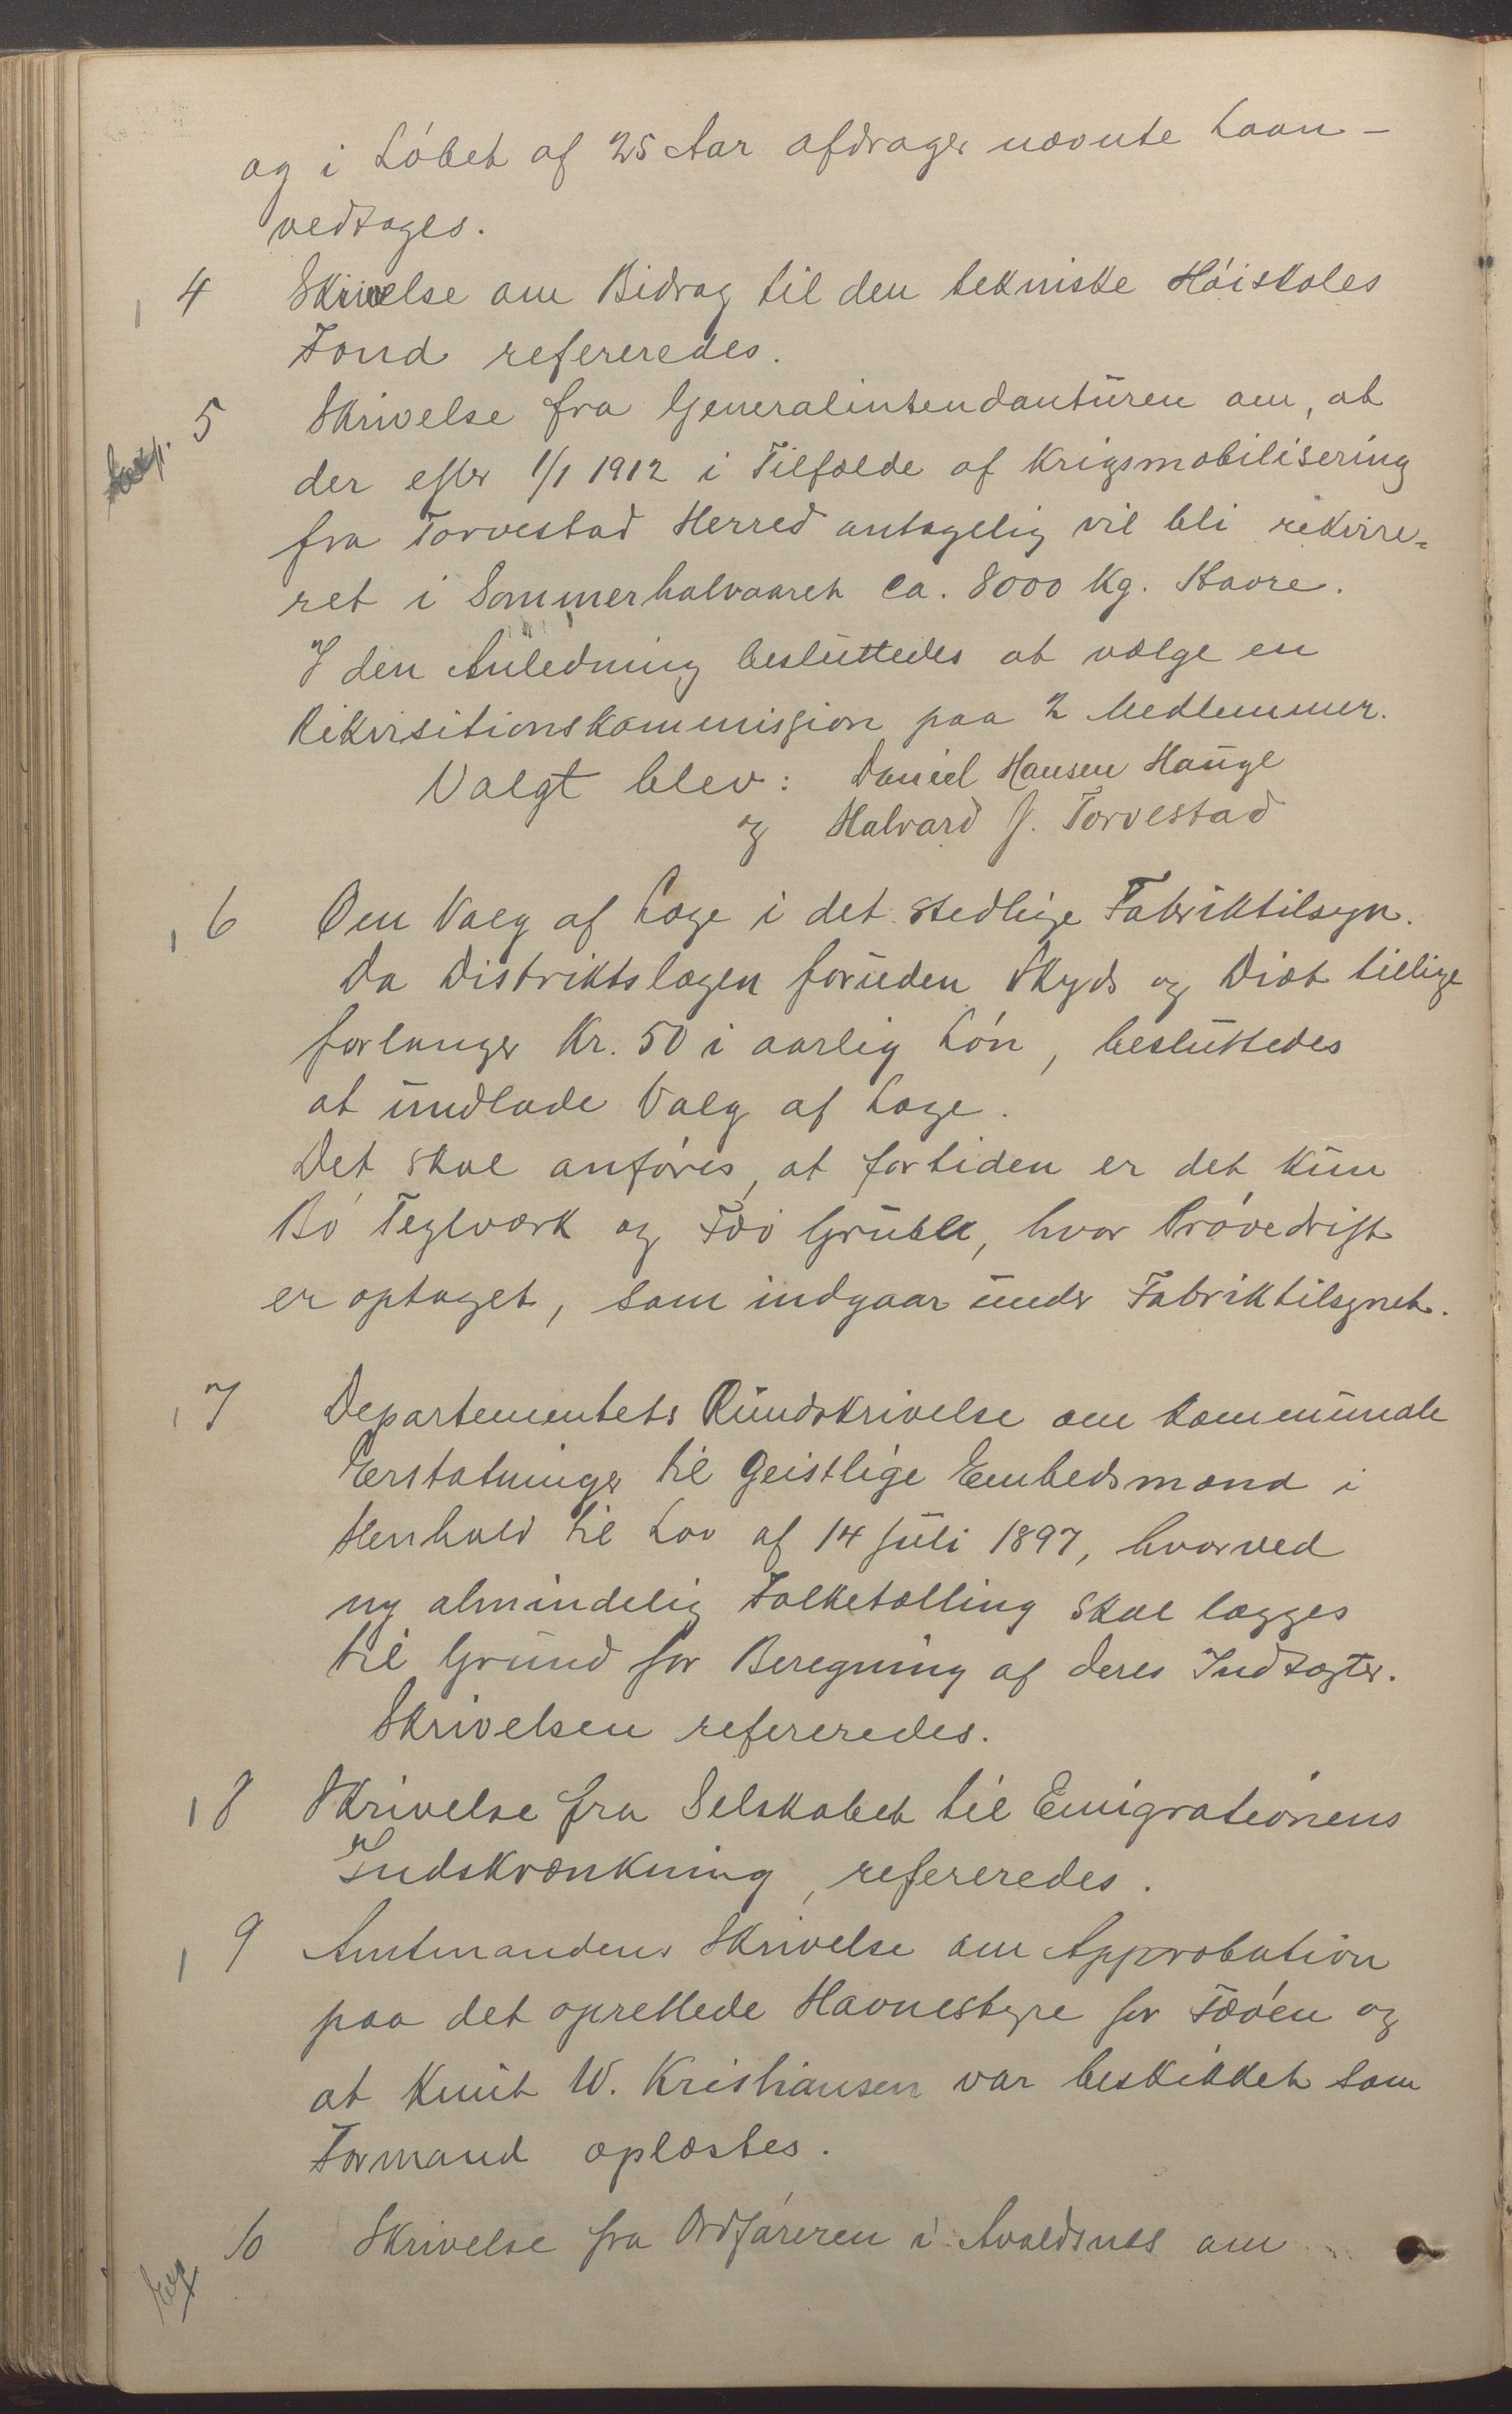 og i Løbet af 25 Aar afdrager nævnte Laan –
vedtages.
4 Skrivelse om Bidrag til den tekniske Høiskoles
Fond refereredes.
5 Skrivelse fra Generalintendanturen om, at
der efter 1/1 1912 i Tilfælde af Krigsmobilisering
fra Torvestad Herred antagelig vil bli rekvire=
ret i Sommerhalvaaret ca. 8000 Kg. Havre.
I den Anledning besluttedes at vælge en
Rekvisitionskommission paa 2 Medlemmer.
Valgt blev: Daniel Hansen Hauge
og Halvard J. Torvestad
6 Om Valg af Læge i det stedlige Fabriktilsyn.
Da Distriktslægen foruden Skyds og Diæt tillige
forlanger Kr. 50 i aarlig Løn, besluttedes
at undlade Valg af Læge.
Det skal anføres, at fortiden er det kun
Bø Teglværk og Feø Grube, hvor Prøvedrift
er optaget, som indgaar under Fabriktilsynet.
7 Departementets Rundskrivelse om kommunale
Erstatninger til Geistlige Embedsmænd i
Henhold til Lov af 14 Juli 1897, hvorved
ny almindelig Folketælling skal lægges
til Grund for Beregning af deres Indtægter.
Skrivelsen refereredes.
8 Skrivelse fra Selskabet til Emigrationens
Indskrænkning, refereredes.
9 Amtmandens Skrivelse om Approbation
paa det oprettede Havnestyre for Feøen og
at Knut W. Kristiansen var beskikket som
Formand oplæstes.
10 Skrivelse fra Ordføreren i Avaldsnes om